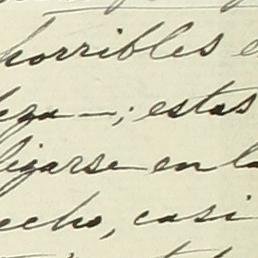 horribles e
; estas
ligarse en la
echo, casi